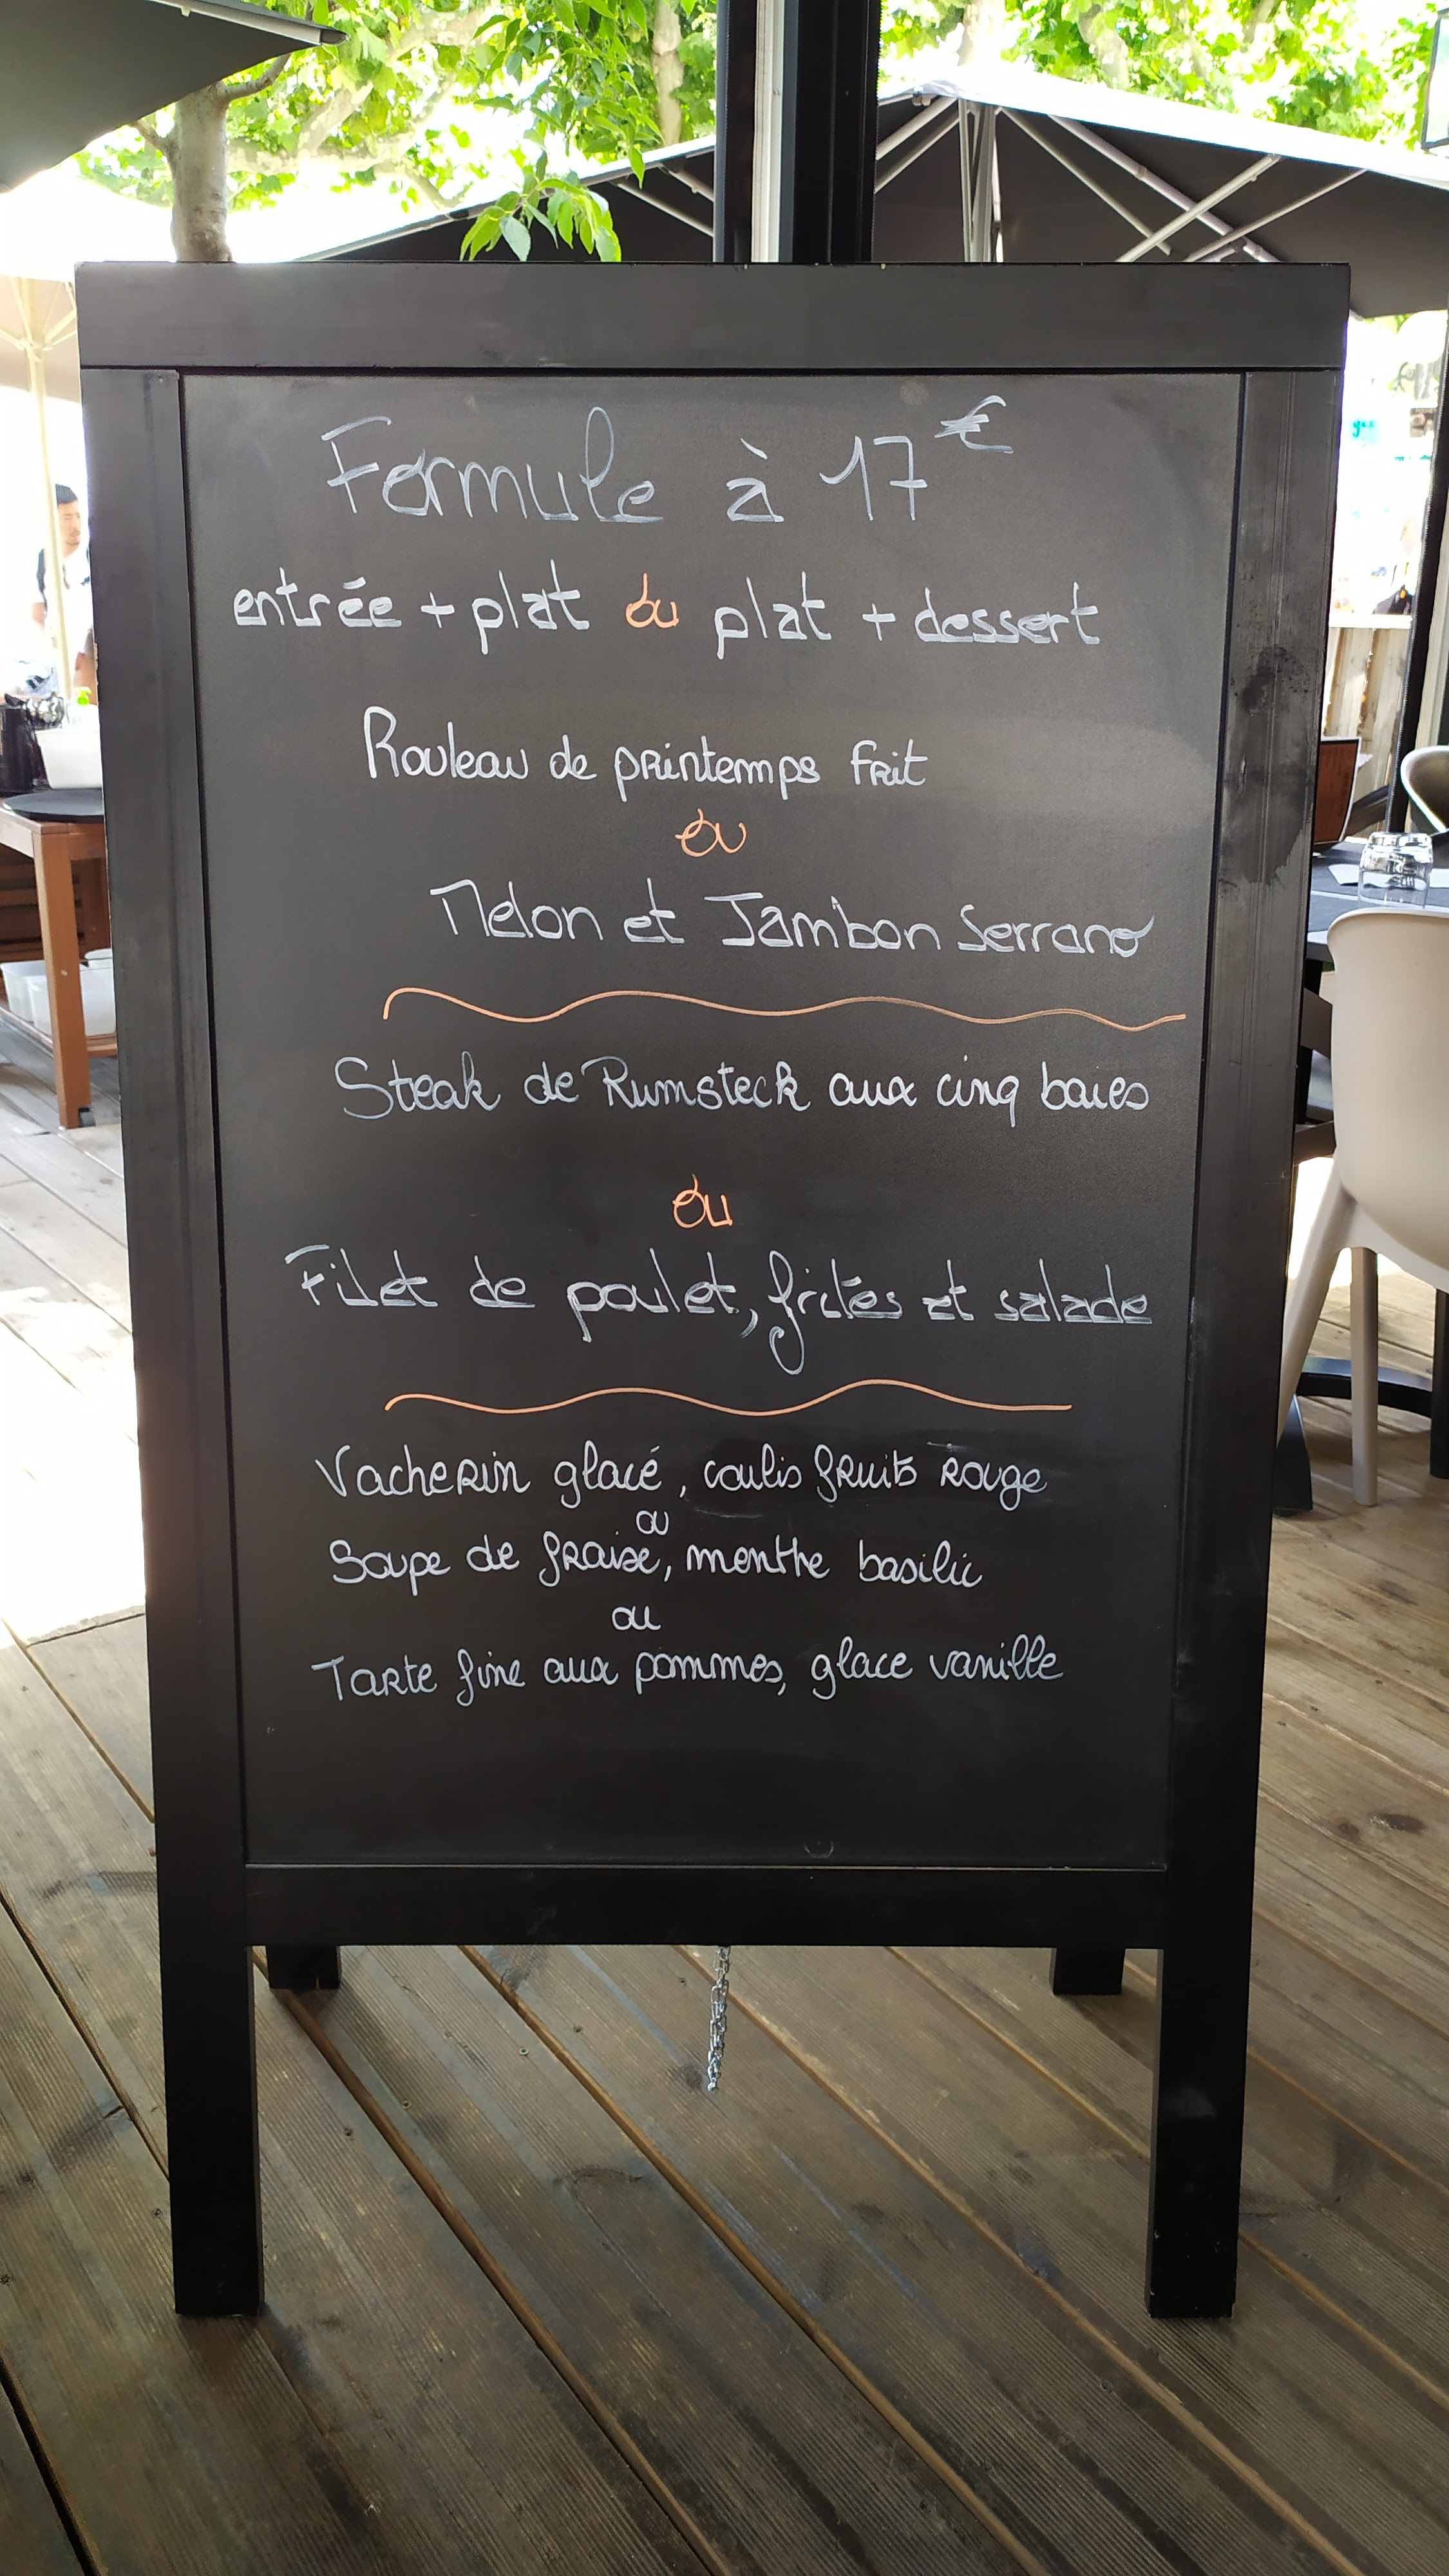 Formule à 17€
entrée + plat ou plat + dessert
Rouleau de printemps frit
ou
Melon et Jambon Serrano
Steak de Rumsteck aux cinq baies
ou
Filet de poulet, frites et salade
Vacherin glacé, coulis fruits rouge
ou
Soupe de fraise, menthe basilic
ou
Tarte fine aux pommes, glace vanille